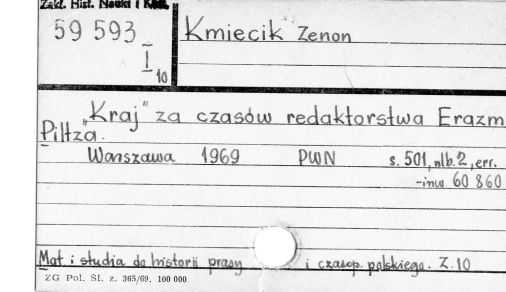 Zakł. Hist. Nauki i Tech.
59 593
I
10
Kmiecik Zenon
„Kraj" za czasów redaktorstwa Erazm
Piltza.
Warszawa 1969 PWN s. 501, nlb. 2, err.
-inw. 60 860
Mat. i studia do historii prasy i czasop. polskiego. Z. 10
ZG Pol. Śl. z. 365/69. 100 000